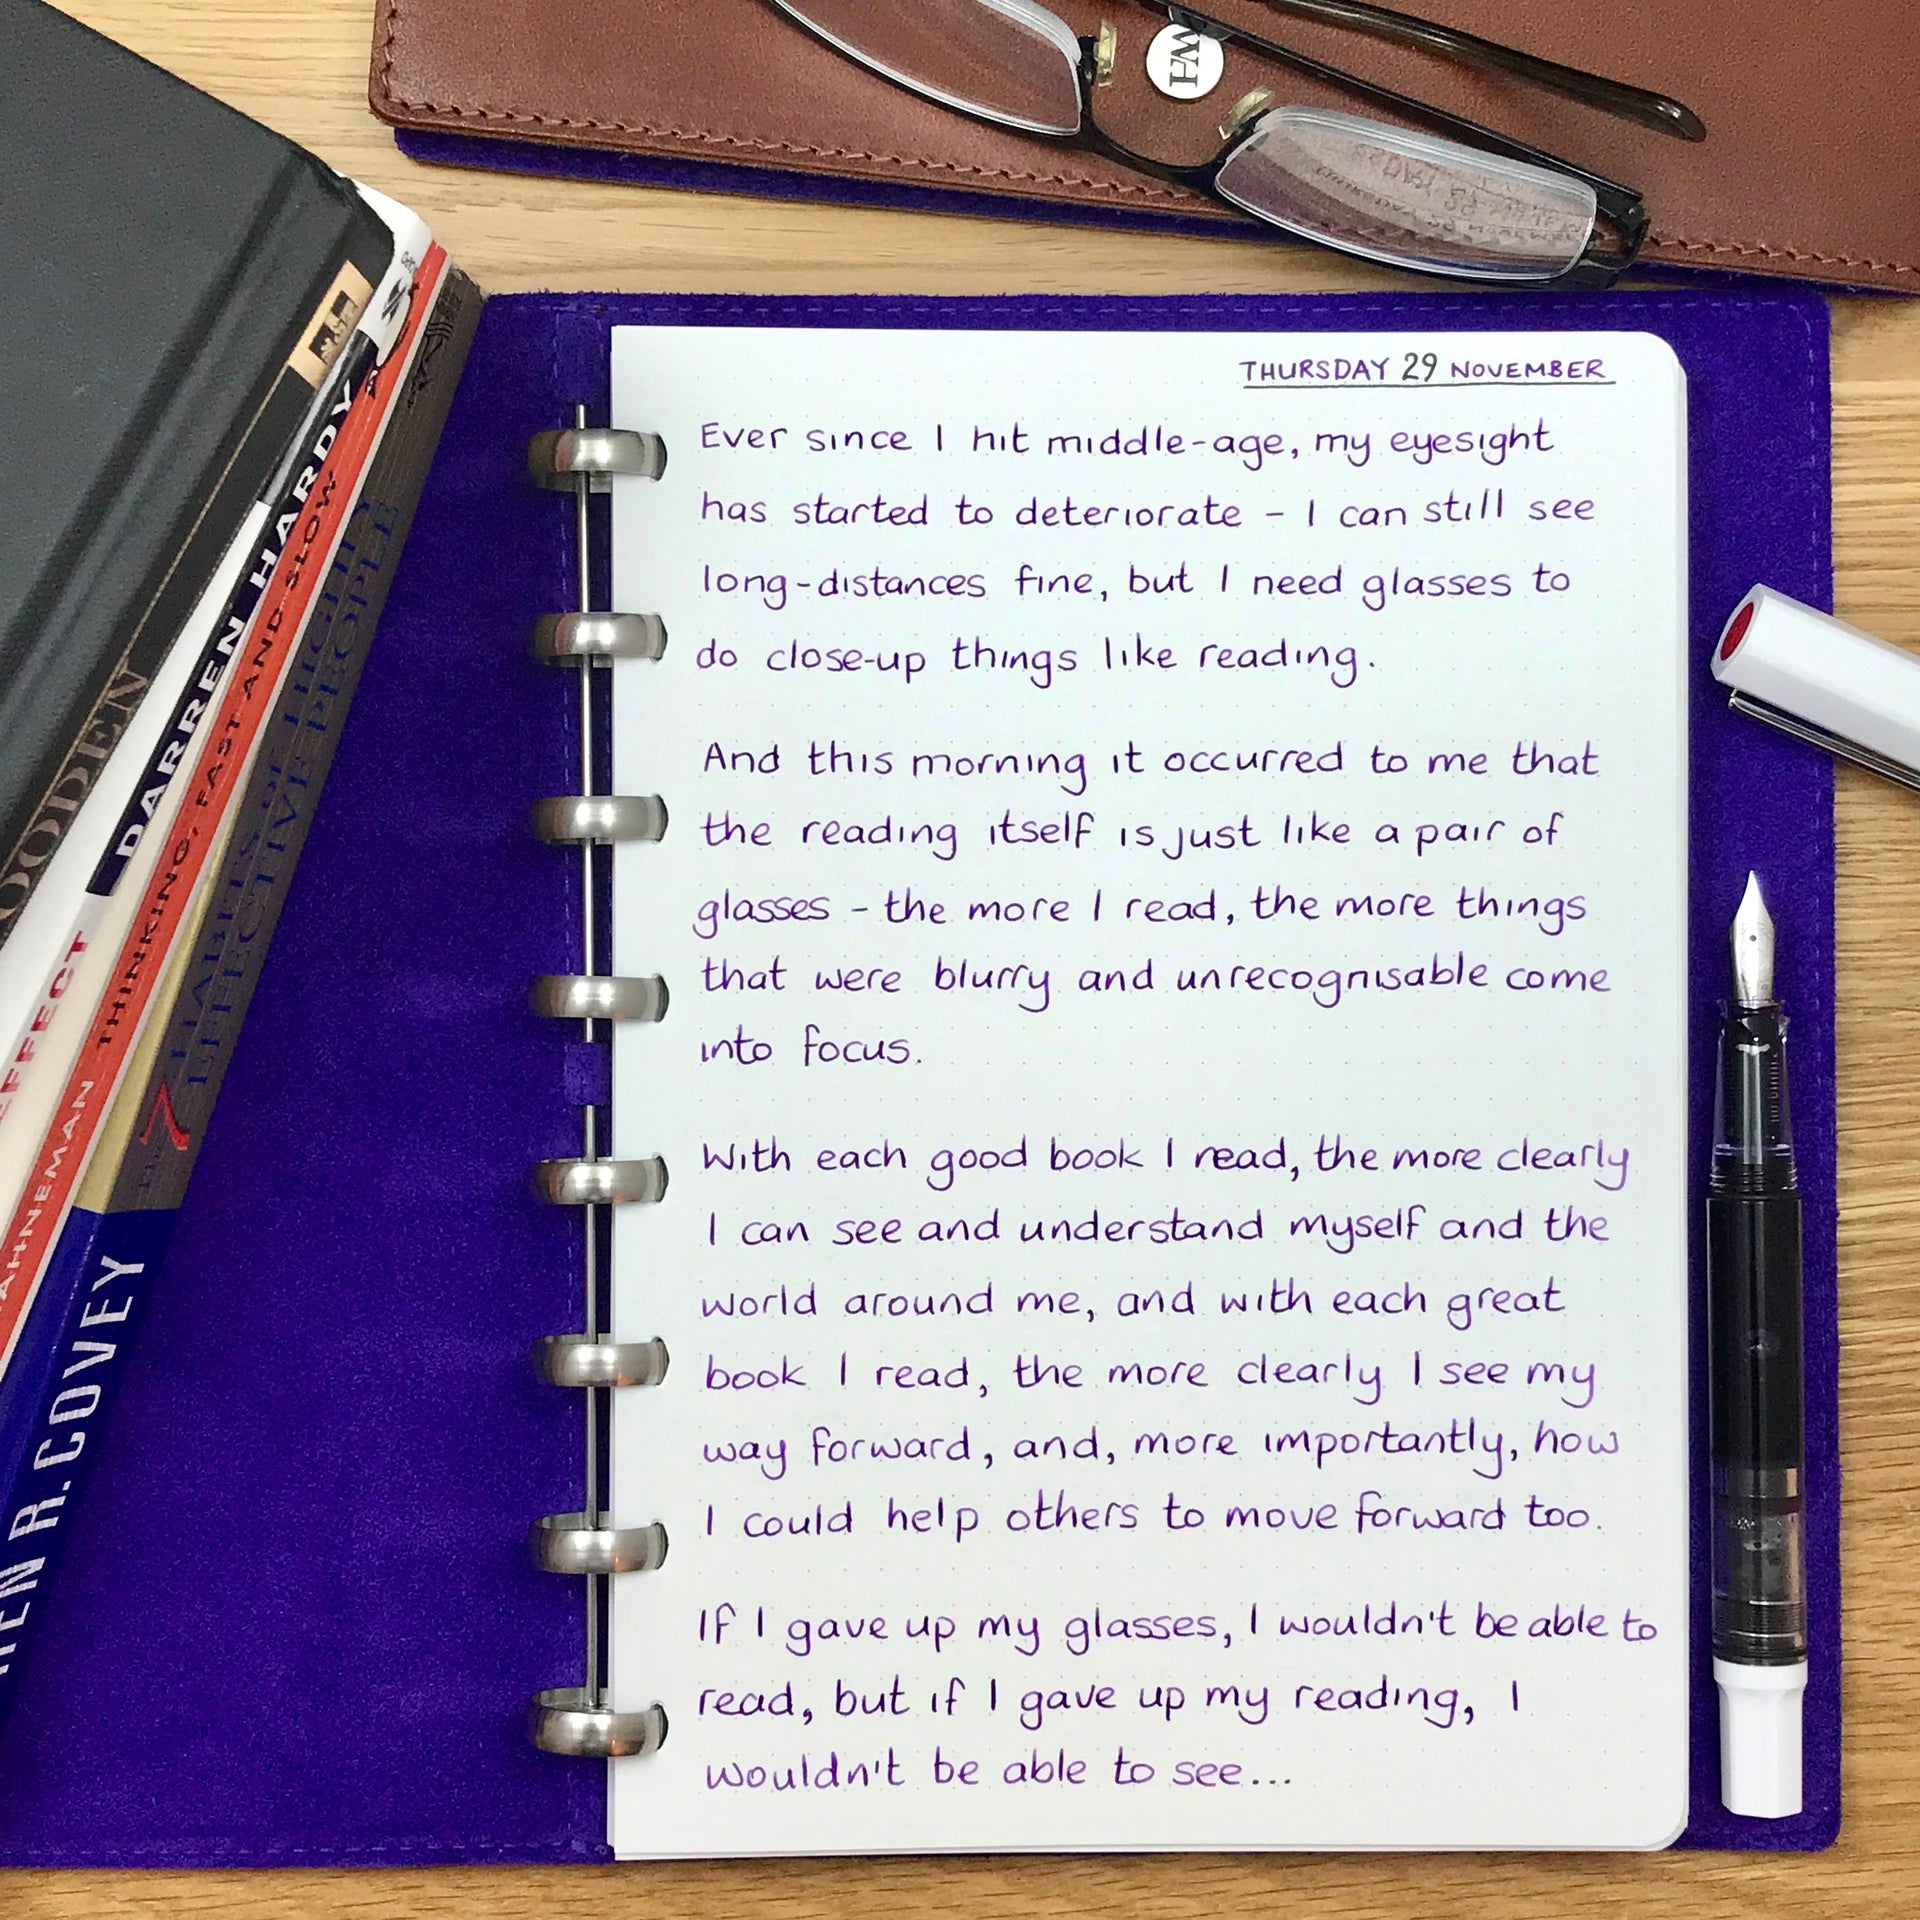 WH
THURSDAY 29 NOVEMBER
Ever since I hit middle-age, my eyesight
has started to deteriorate - I can still see
long-distances fine, but I need glasses to
do close-up things like reading.
And this morning it occurred to me that
the reading itself is just like a pair of
glasses - the more I read, the more things
that were blurry and unrecognisable come
into focus.
With each good book I read, the more clearly
I can see and understand myself and the
world around me, and with each great
book I read, the more clearly I see my
way forward, and, more importantly, how
I could help others to move forward too.
If I gave up my glasses, I wouldn't be able to
read, but if I gave up my reading, I
wouldn't be able to see...
OODEN
EFFECT DARREN HARDY
AHNEMAN THINKING, FAST AND SLOW
HEN R. COVEY THE 7 HABITS OF HIGHLY
EFFECTIVE PEOPLE